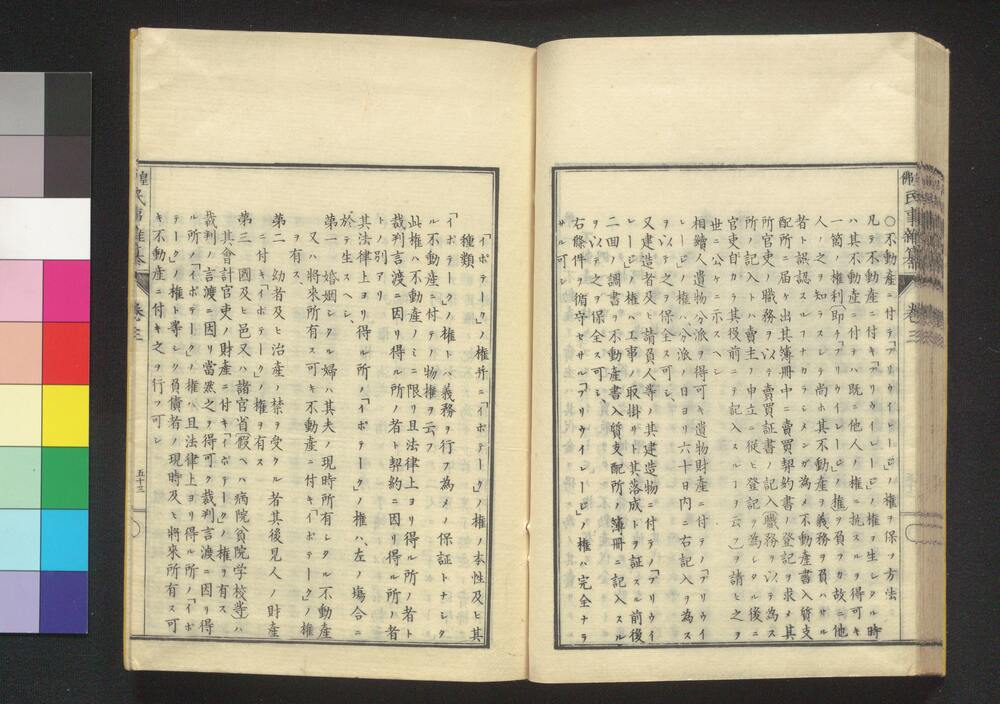 佛民事雑纂 巻三
○不動産ニ付テ「プリウイレージ」ノ権ヲ保ツ方法
凡ソ不動産ニ付キ「プリウイレージ」ノ権ヲ生シタル時
ハ其不動産ニ付テハ既ニ他人ノ権ニ抗スルヲ得可キ
一箇ノ権利即チ「プリウイレージ」ノ権ヲ負フカ故ニ他
人ノ之ヲ知ラスシテ尚ホ其不動産ヲ義務ヲ負ハサル
者ト誤認スルフナカラシメンガ為メ不動産書入質支
配所ニ届ケ出其簿冊中ニ賣買契約書ノ登記ヲ求メ其
所官吏ノ職務ヲ以テ賣買証書ノ記入職務ヲ以テ為ス
所ノ記入トハ賣主ノ申立ニ従ヒ登記ヲ為シタル後ニ
官吏自カラ其後前ニテ記入スルヿヲ云フヲ請ヒ之ヲ
世ニ公ケニ示スヘシ
相續人遺物分派ヲ得可キ遺物財産ニ付テノ「プリウイ
レージ」ノ権ハ分派ノ日ヨリ六十日内ニ右記入ヲ為ス
ヲ以テ之ヲ保全ス可シ
又建造者及ヒ請負人等ノ其建造物ニ付テノ「プリウイ
レージ」ノ権ハ工事ノ取掛リト其落成トヲ証スル前後
二回ノ調書ヲ不動産書入質支配所ノ簿冊ニ記入スル
ヲ以テ之ヲ保全ス可シ
右條件ヲ循守セサル「プリウイレージ」ノ権ハ完全ナラ
サル可シ
「イポテーク」ノ権并ニ「イポテーク」ノ権ノ本性及ヒ其
種類
「イポテーク」ノ権トハ義務ヲ行フ為メノ保証トナシタ
ル不動産ニ付テノ物権ヲ云フ
此権ハ不動産ノミニ限リ且法律上ヨリ得ル所ノ者ト
裁判言渡ニ因リ得ル所ノ者ト契約ニ因リ得ル所ノ者
トノ別アリ
其法律上ヨリ得ル所ノ「イポテーク」ノ権ハ、左ノ塲合ニ
於テ生スヘシ
第一 婚姻シタル婦ハ其夫ノ現時所有シタル不動産
又ハ将来所有ス可キ不動産ニ付キ「イポテーク」ノ権
ヲ有ス
第二 幼者及ヒ治産ノ禁ヲ受クル者其後見人ノ財産
ニ付キ「イポテーク」ノ権ヲ有ス
第三 國及ヒ邑又ハ諸官省(假ヘハ病院貧院学校等)ハ
其會計官吏ノ財産ニ付キ「イポテーク」ノ権ヲ有ス
裁判ノ言渡ニ因リ當然之ヲ得可ク裁判言渡ニ因リ得
ル所ノ「イポテーク」ノ権ハ且法律上ヨリ得ル所ノ「イポ
テーク」ノ権ト等シク負債者ノ現時及ヒ将来所有ス可
キ不動産ニ付キ之ヲ行フ可シ
民事雑纂 巻三 五十三